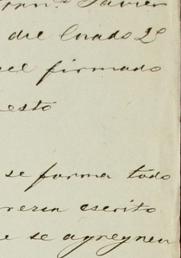 Javier
del Grado 2º
firmado
esto
se forma todo
escrito
se agreguen